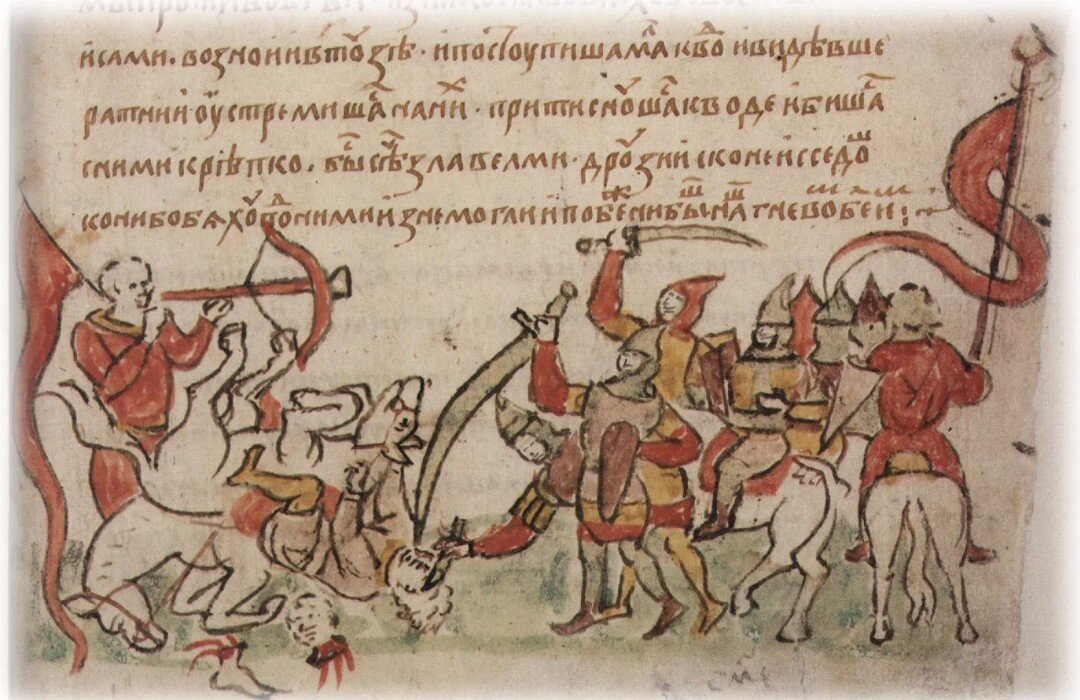 исами. возноиивтоузѣ · ипостоупишамⷧа квоⷣ ивидѣвше
ратнии оустремишаⷭ҇ наниⷯ · притиснꙋшаⷭ҇ к воде ибишаⷭ҇
сними крѣпко. быⷭ҇ сѣⷱ зла велми · дрꙋзии сконеи сседоⷲ
кони бо бѧхꙋ поⷣ ними изнемогли и побеⷤни быⷲ наⷲ гнево беи